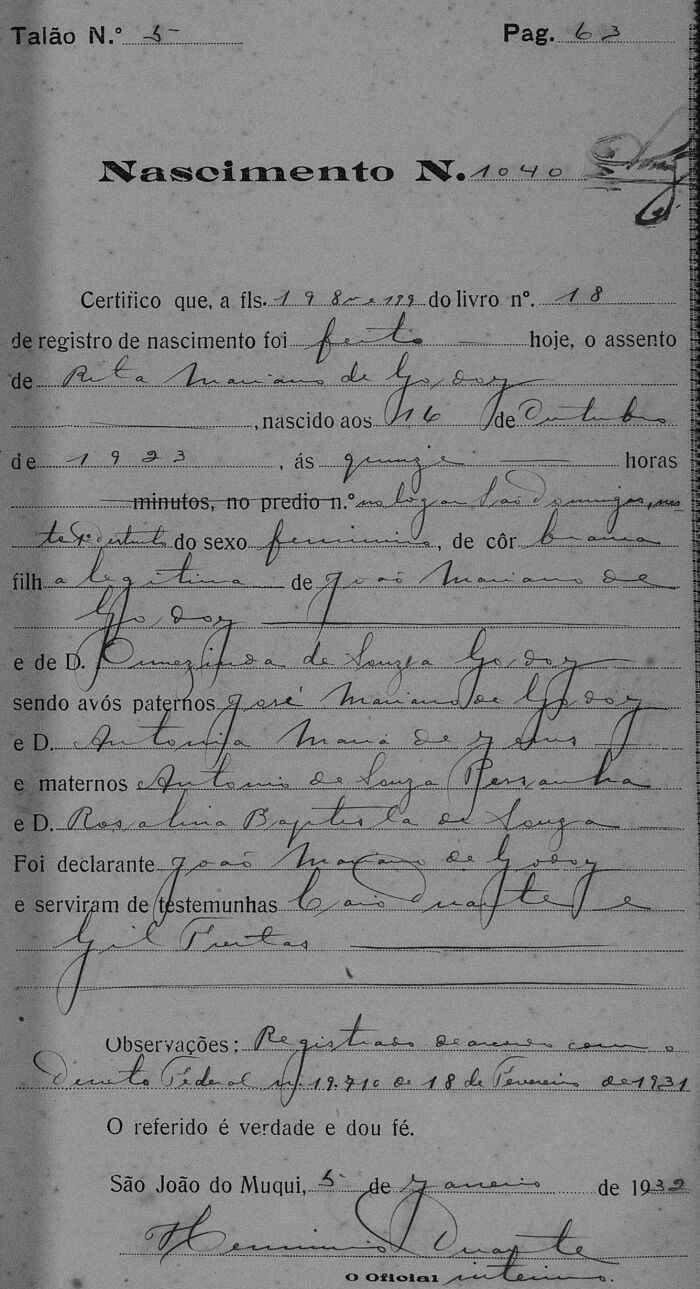 Talão N.° 5 Pag. 63
Nascimento N. 1040
Certifico que, a fls. 198v e 199 do livro n°. 18
de registro de nascimento foi feito hoje, o assento
de Rita Mariano de Godoy
, nascido aos 16 de Outubro
de 1923, ás quinze horas
minutos, no predio n.° no logar São Domingos, nes-
te 1° districto do sexo feminino, de côr branca
filha legitima de João Mariano de
Godoy
e de D. de Souza Godoy
sendo avós paternos José Mariano de Godoy
e D. Antonia Maria de Jesus
e maternos Antonio de Souza Pessanha
e D. Rosalina Baptista de Souza
Foi declarante João Mariano de Godoy
e serviram de testemunhas Caio Duarte e
Gil Freitas
Observações: Registrado de accordo com o
Decreto Federal nº 19.710 de 18 de Fevereiro de 1931
O referido é verdade e dou fé.
São João do Muqui, 5 de Janeiro de 1932
Herminio Duarte
O Oficial interino.